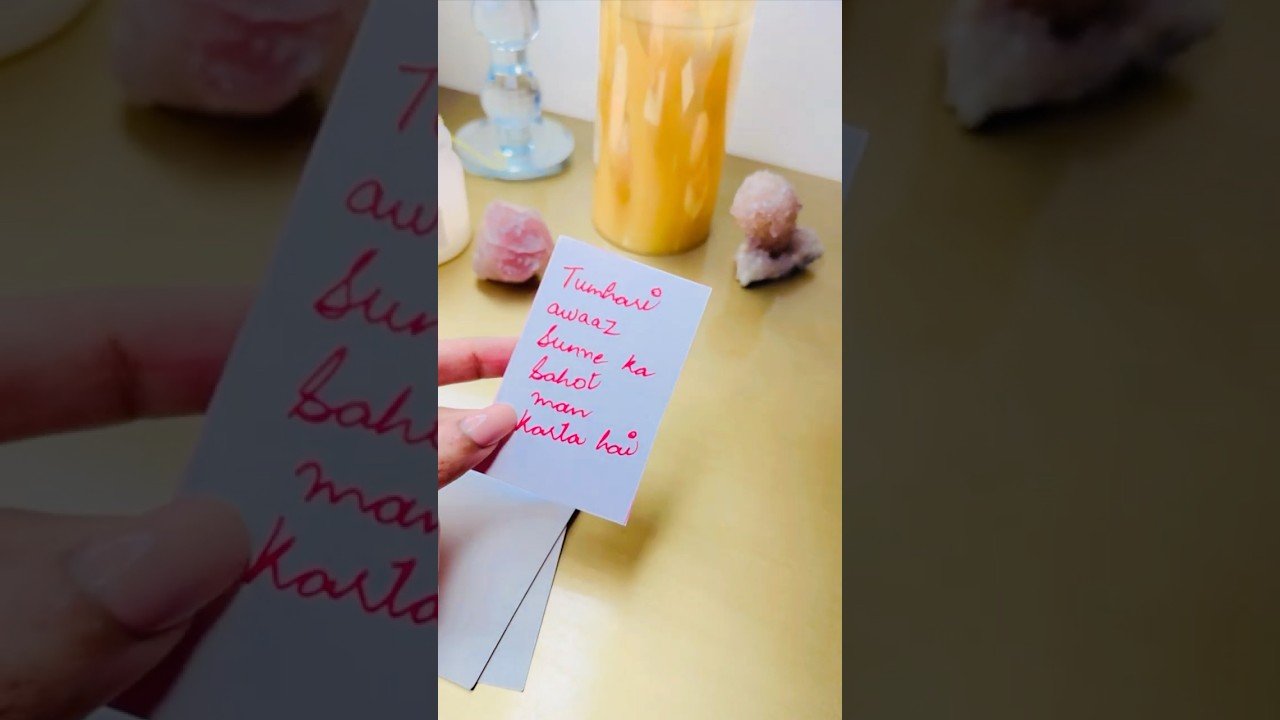 Tumhari
awaaz
Sunne ka
bahot
man
Karta hai